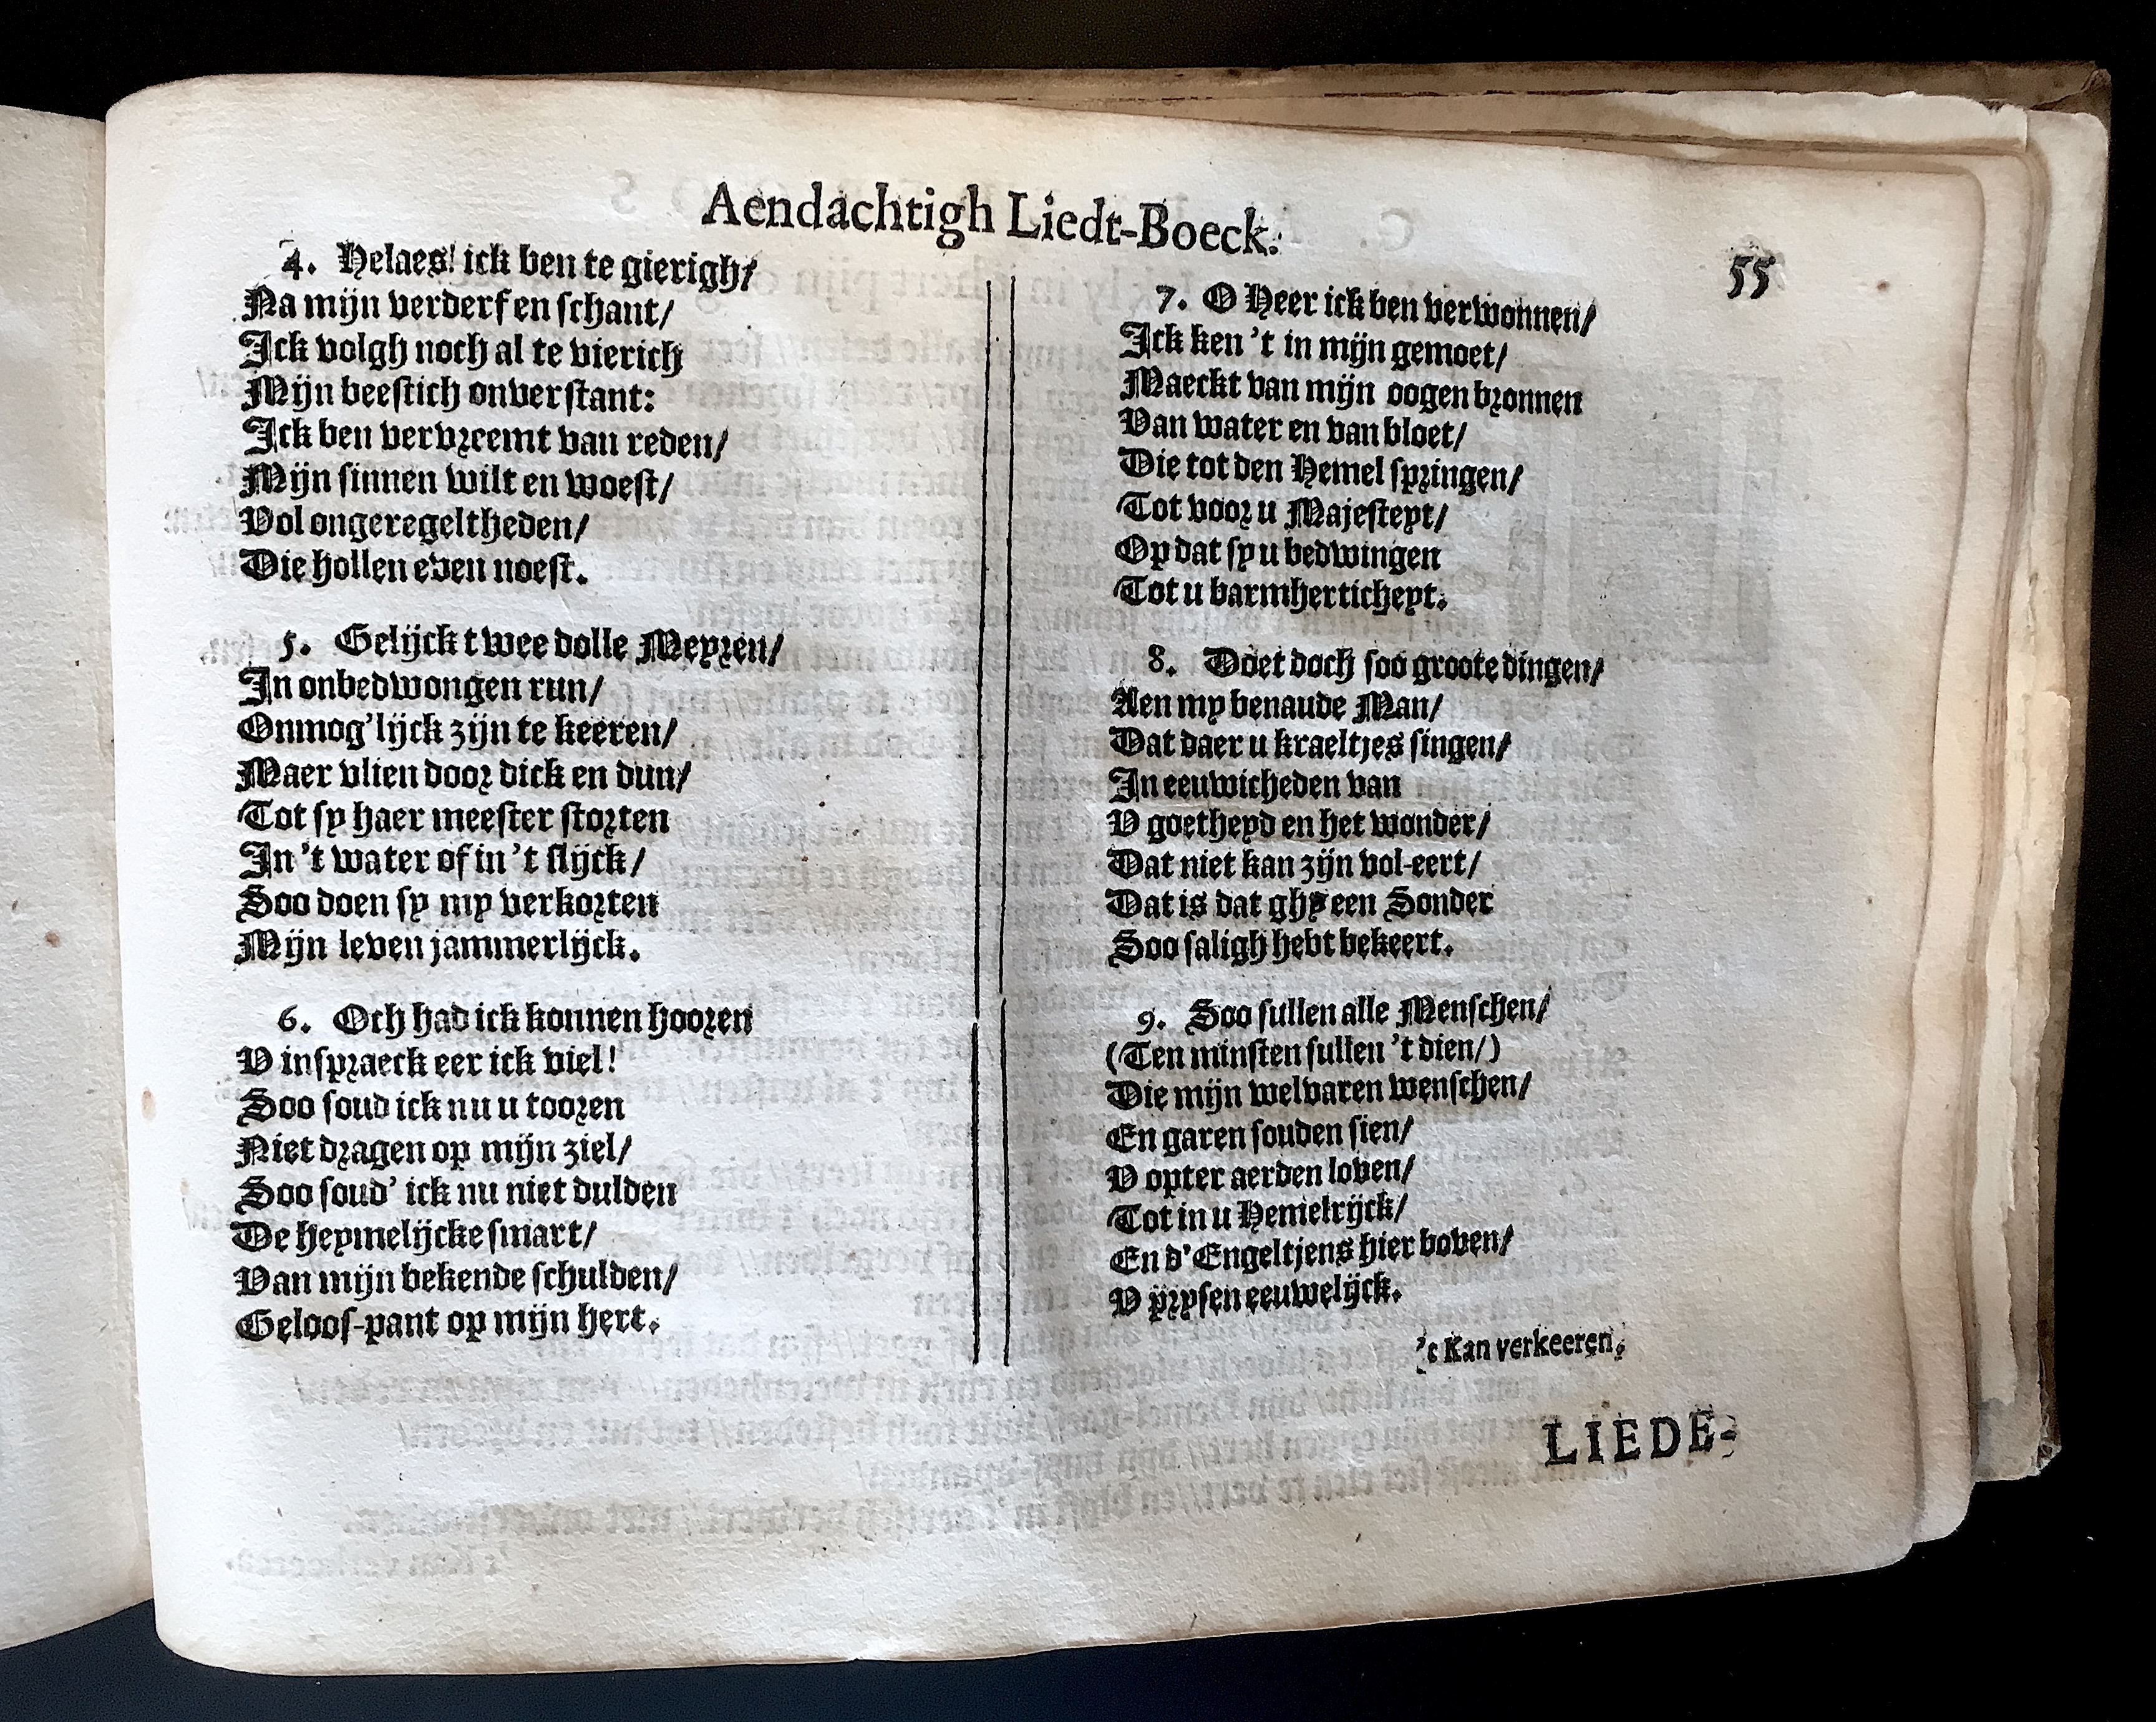 Aendachtigh Liedt-Boeck.
55
4. Helaes! ick ben te gierigh/
Na mijn verderf en schant/
Ick volgh noch al te vierich
Mijn beestich onverstant:
Ick ben vervreemt van reden/
Mijn sinnen wilt en woest/
Vol ongeregeltheden/
Die hollen even noest.
5. Gelijck twee dolle Meyren/
In onbedwongen run/
Onmog'lijck zijn te keeren/
Maer vlien door dick en dun/
Tot sy haer meester storten
In 't water of in 't slijck/
Soo doen sy my verkorten
Mijn leven jammerlijck.
6. Och had ick konnen hooren
V inspraeck eer ick viel!
Soo soud ick nu u tooren
Niet dragen op mijn ziel/
Soo soud' ick nu niet dulden
De heymelijcke smart/
Van mijn bekende schulden/
Geloof-pant op mijn hert.
7. O Heer ick ben verwonnen/
Ick ken 't in mijn gemoet/
Maeckt van mijn oogen bronnen
Van water en van bloet/
Die tot den Hemel springen/
Tot voor u Majesteyt/
Op dat sy u bedwingen
Tot u barmherticheyt.
8. Doet doch soo groote dingen/
Aen my benaude Man/
Dat daer u kraeltjes singen/
In eeuwicheden van
V goetheyd en het wonder/
Dat niet kan zijn vol-eert/
Dat is dat ghy een Sonder
Soo saligh hebt bekeert.
9. Soo sullen alle Menschen/
(Ten minsten sullen 't dien/)
Die mijn welvaren wenschen/
En garen souden sien/
V opter aerden loven/
Tot in u Hemelrijck/
En d'Engeltjens hier boven/
V prysen eeuwelijck.
't Kan verkeeren.
LIEDE-